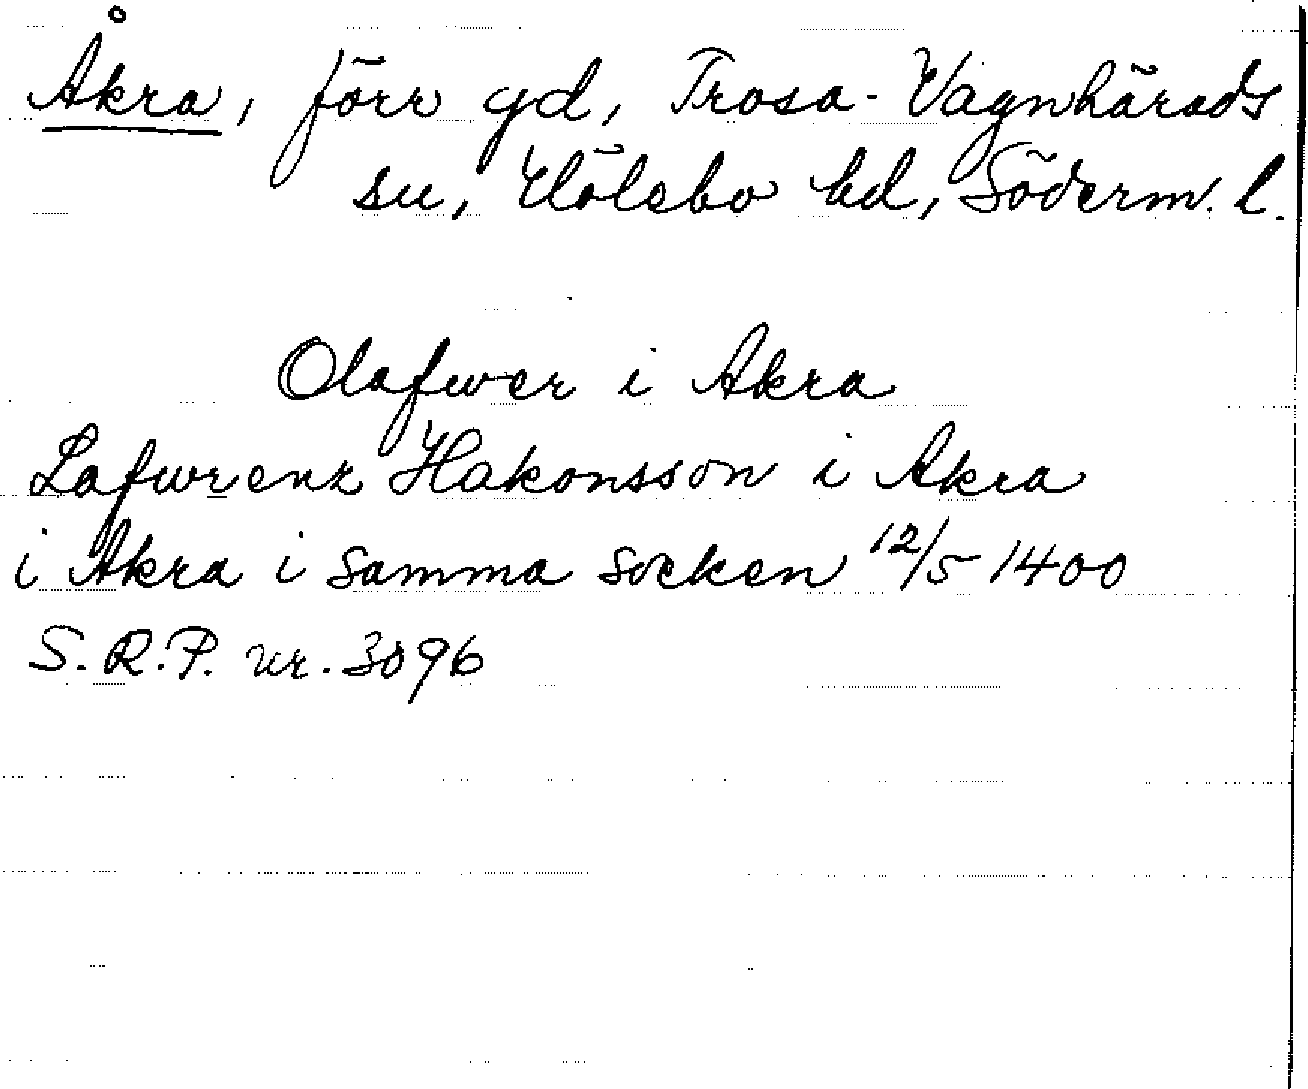 Åkra, förr gd, Trosa-Vagnhärads
sn, Hölebo hd, Söderm. l.
Olafwer i Akra
Lafwrenz Hakonsson i Akra
i Akra i samma socken 12/5 1400
S.R.P. nr. 3096